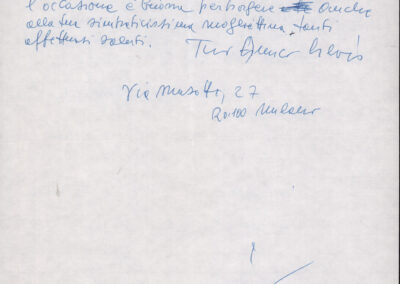 l'occasione è buona per porgere anche
alla tua simpaticissima mogliettina tanti
affettuosi saluti.
Tuo
Via Musotto, 27
20100 Milano